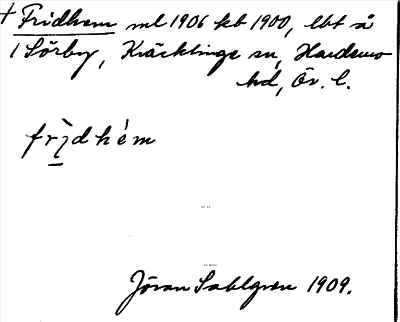 + Fridhem ml 1906 kb 1900, lbt å
1 Sörby, Kräcklinge sn, Hardemo
hd, Ör. l.
frìdhém
Jöran Sahlgren 1909.